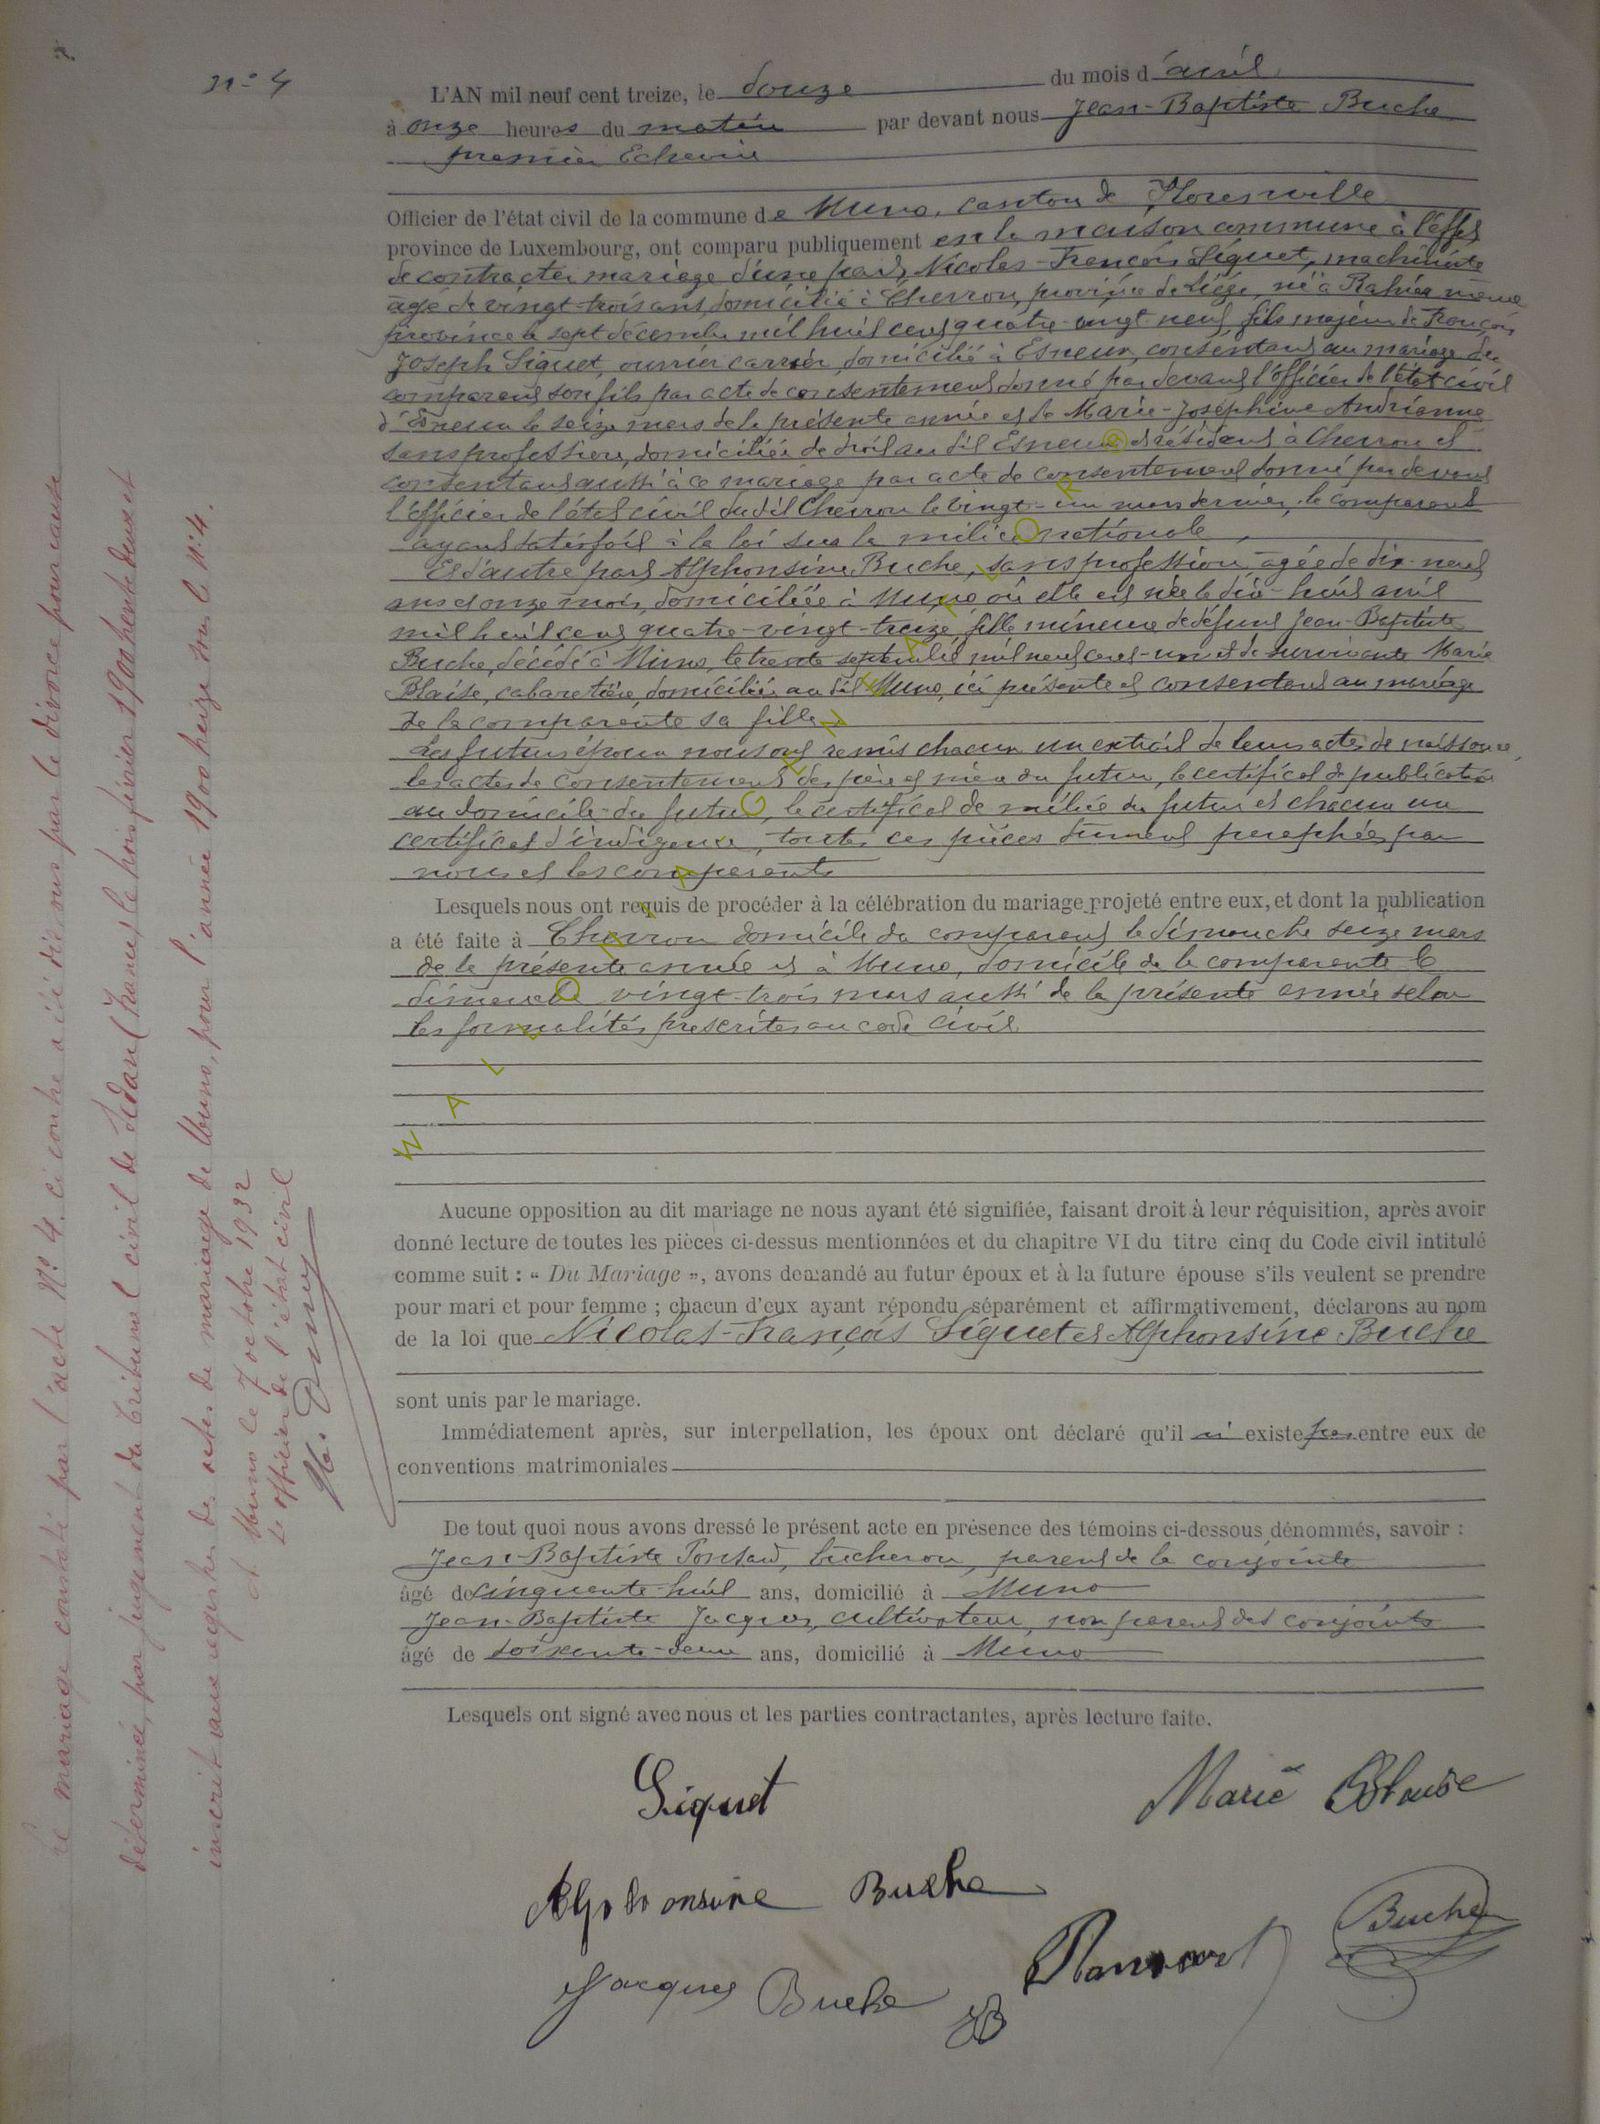 n° 4
L'AN mil neuf cent treize, le douze du mois d'avril
à onze heures du matin par devant nous Jean-Baptiste Buche
premier Echevin
Officier de l'état civil de la commune de Muno, canton de Florenville
province de Luxembourg, ont comparu publiquement en la maison commune à l'effet
de contracter mariage d'une part, Nicolas-François Siquet, machiniste
âgé de vingt-trois ans, domicilié à Chevron, province de Liége, né à Rahier même
province le sept décembre mil huit cent quatre-vingt-neuf, fils majeur de François
Joseph Siquet, ouvrier carrier, domicilié à Esneux, consentant au mariage du
comparant son fils par acte de consentement donné par devant l'officier de l'état civil
d'Esneux le seize mars de la présente année et de Marie-Joséphine Andrianne
sans profession, domiciliée de droit au dit Esneux et résidant à Chevron et
consentant aussi à ce mariage par acte de consentement donné par devant
l'officier de l'état civil du dit Chevron le vingt-un mars dernier, le comparant
ayant satisfait à la loi sur la milice nationale,
Et d'autre part Alphonsine Buche, sans profession, agée de dix-neuf
ans et onze mois, domiciliée à Muno où elle est née le dix-huit avril
mil huit cent quatre-vingt-treize, fille mineure de défunt Jean-Baptiste
Buche, décédé à Muno, le trente septembre mil neuf cent-un et de survivante Marie
Blaise, cabaretière, domiciliée au dit Muno, ici présente et consentant au mariage
de la comparante sa fille
Les futurs époux nous ont remis chacun un extrait de leurs actes de naissance,
les actes de consentement des père et mère du futur, le certificat de publication
au domicile du futur, le certificat de milice du futur et chacun un
certificat d'indigence, toutes ces pièces dûment paraphées par
nous et les comparants
Lesquels nous ont requis de procéder à la célébration du mariage projeté entre eux, et dont la publication
a été faite à Chevron domicile du comparant le dimanche seize mars
de la présente année et à Muno, domicile de la comparante le
dimanche vingt-trois mars aussi de la présente année selon
les formalités prescrites au code civil
Aucune opposition au dit mariage ne nous ayant été signifiée, faisant droit à leur réquisition, après avoir
donné lecture de toutes les pièces ci-dessus mentionnées et du chapitre VI du titre cinq du Code civil intitulé
comme suit : « Du Mariage », avons demandé au futur époux et à la future épouse s'ils veulent se prendre
pour mari et pour femme ; chacun d'eux ayant répondu séparément et affirmativement, déclarons au nom
de la loi que Nicolas-François Siquet et Alphonsine Buche
sont unis par le mariage.
Immédiatement après, sur interpellation, les époux ont déclaré qu'il n'existe pas entre eux de
conventions matrimoniales
De tout quoi nous avons dressé le présent acte en présence des témoins ci-dessous dénommés, savoir :
Jean-Baptiste Ponsard, bucheron, parent de la conjointe
âgé de cinquante-huit ans, domicilié à Muno
Jean-Baptiste Jacques, cultivateur, non parent des conjoints
âgé de soixante-deux ans, domicilié à Muno
Lesquels ont signé avec nous et les parties contractantes, après lecture faite.
Siquet
Marie Blaise
Alphonsine Buche
Buche
Ponsart
Jacques Buche
JB
Le mariage constaté par l'acte N° 4 ci contre a été dissous par le divorce pour cause
déterminée, par jugement du tribunal civil de Sedan (France) le trois février 1900 trente deux et
inscrit aux registres des actes de mariage de Muno, pour l'année 1900 treize sous le n° 4.
A Muno le 7 octobre 1932
L'officier de l'état civil